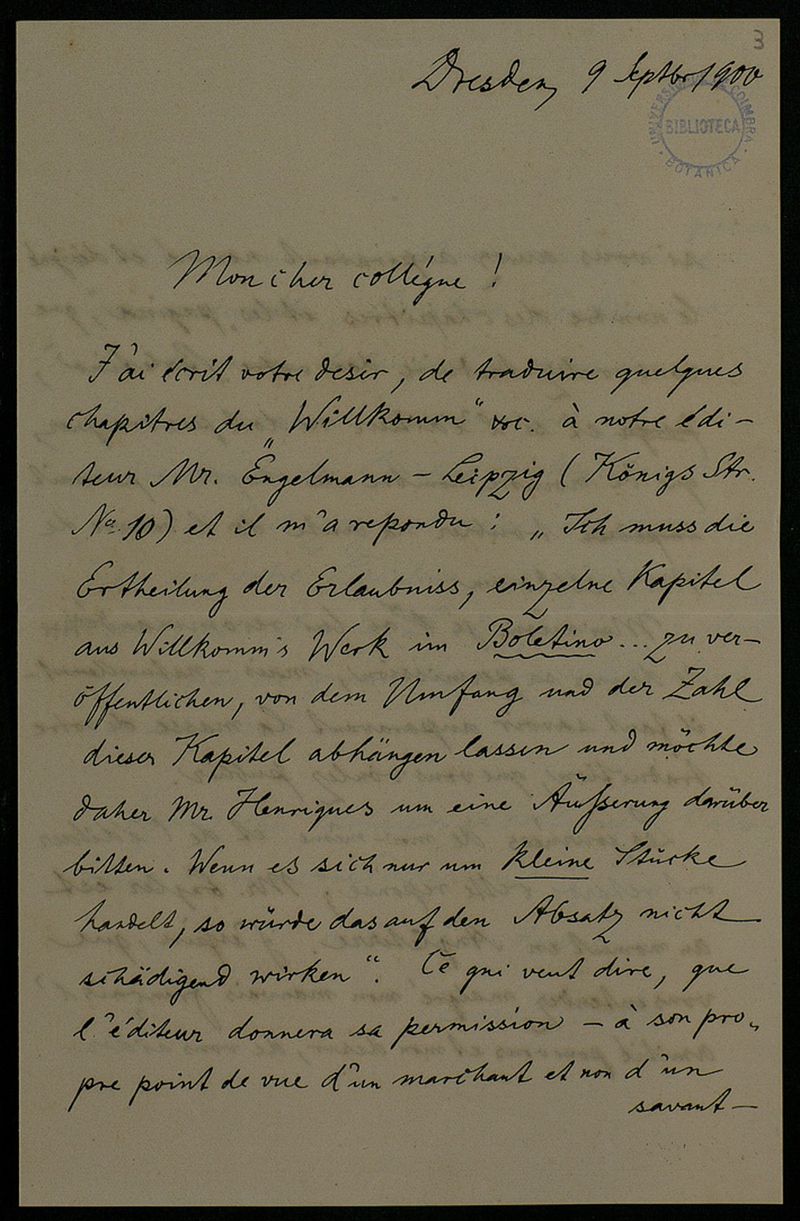 3
Dresden, 9 Septbr 1900
UNIVERSIDADE DE COIMBRA
BIBLIOTECA
BOTANICA
Mon cher collégue !
J'ai écrit votre desir, de traduire quelques
chapitres du „Willkomm" etc. à notre édi-
teur Mr. Engelmann - Leipzig (Königs Str.
No 10) et il m'a repondu : „Ich muss die
Ertheilung der Erlaubniss, einzelne Kapitel
aus Willkomm's Werk im Boletino ... zu ver-
öffentlichen, von dem Umfang und der Zahl
dieser Kapitel abhängen lassen und möchte
daher Mr. Henriques um eine Äußerung darüber
bitten. Wenn es sich nur um kleine Stücke
handelt, so würde das auf den Absatz nicht
schädigend wirken". Ce qui veut dire, que
l'éditeur donnera sa permission - à son pro-
pre point de vue d'un marchant et non d'un
savant -